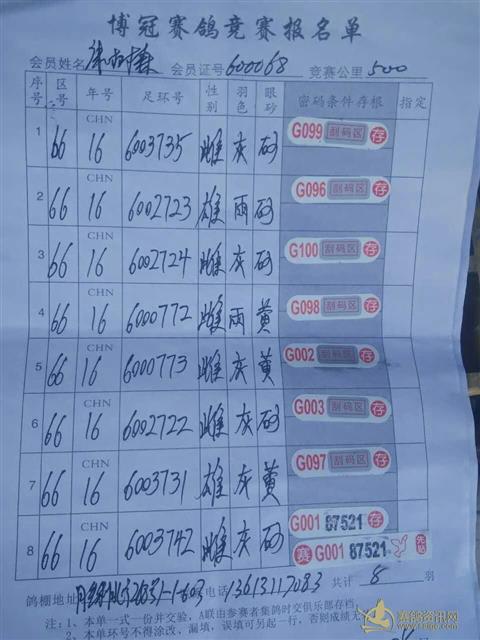 博冠赛鸽竞赛报名单
会员姓名 会员证号600068 竞赛公里500
序号 区号 年号 足环号 性别 羽色 眼砂 密码条件存根 指定
1 66 CHN 16 6003735 雌 灰 砂 G099 刮码区 存
2 66 CHN 16 6002723 雄 雨 砂 G096 刮码区 存
3 66 CHN 16 6002724 雌 灰 砂 G100 刮码区 存
4 66 CHN 16 6000772 雌 雨 黄 G098 刮码区 存
5 66 CHN 16 6000773 雌 灰 黄 G002 刮码区 存
6 66 CHN 16 6002722 雌 灰 砂 G003 刮码区 存
7 66 CHN 16 6003731 雄 灰 黄 G097 刮码区 存
8 66 CHN 16 6003742 雌 灰 砂 G001 87521 存
赛 G001 87521
鸽棚地址 1-1-603 电话13613117083 共计 8 羽
注:1、本单一式一份并交验,A联由参赛者集鸽时交俱乐部存档
2、本单环号不得涂改,漏填,误填可另起一行,否则成绩无
赛鸽资讯网